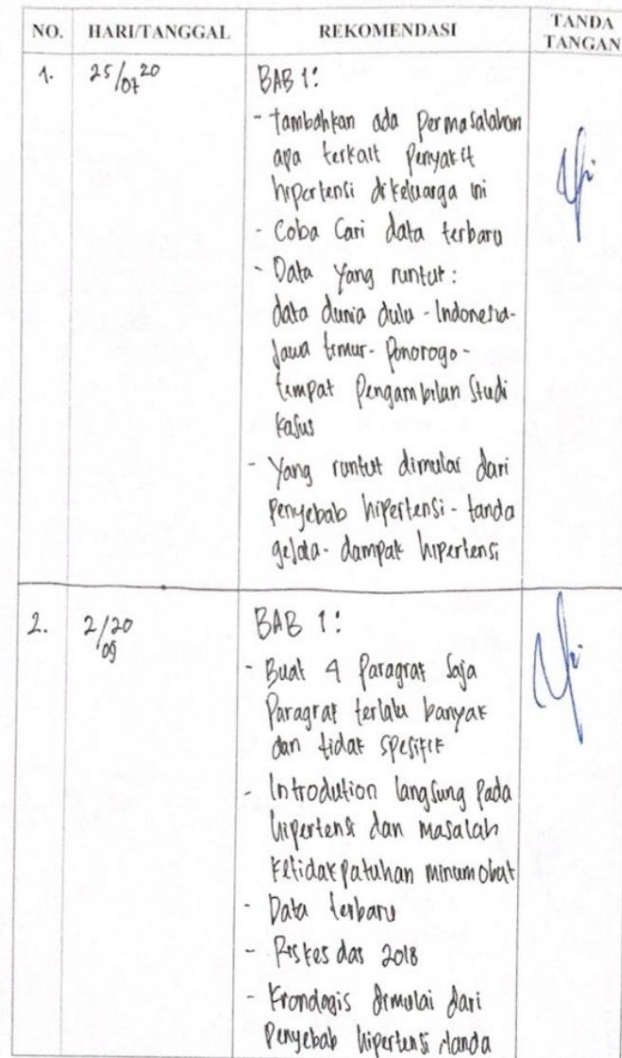 NO. HARI/TANGGAL REKOMENDASI TANDA TANGAN
1. 25/07 20 BAB 1:
- tambahkan ada permasalahan
apa terkait Penyakit
hipertensi dikeluarga ini
- Coba Cari data terbaru
- Data Yang runtut :
data dunia dulu - Indonesia-
Jawa timur- Ponorogo-
tempat Pengambilan Studi
kasus
- Yang runtut dimulai dari
Penyebab hipertensi - tanda
gejala- dampak hipertensi
2. 2/09 20 BAB 1:
- Buat 4 Paragraf Saja
Paragraf terlalu banyak
dan tidak spesifik
- Introdution langsung Pada
hipertensi dan Masalah
ketidakpatuhan minum obat
- Data terbaru
- Riskesdas 2018
- Krondogis dimulai dari
Penyebab hipertensi, tanda